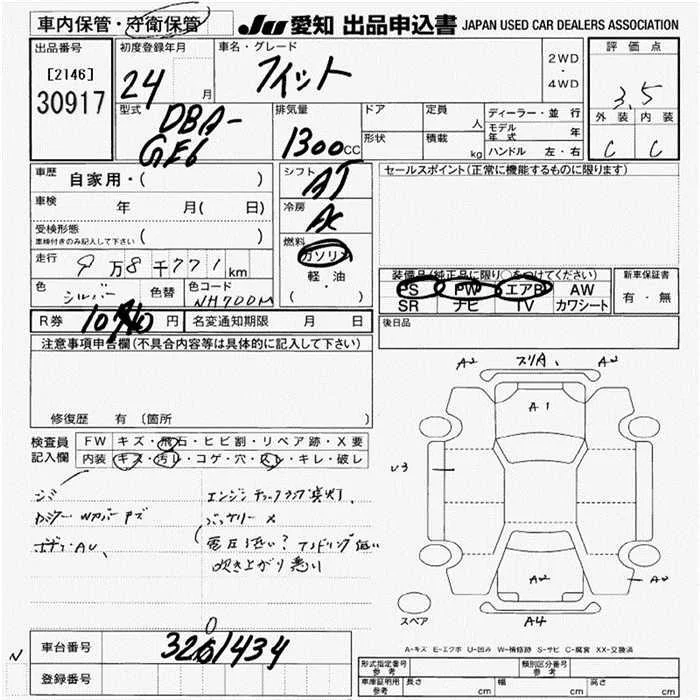 車内保管・守衛保管
JU 愛知 出品申込書 JAPAN USED CAR DEALERS ASSOCIATION
出品番号
[2146]
30917
初度登録年月
24 月
車名・グレード
フィット
2WD
・
4WD
評価点
3.5
外装 内装
C C
型式
DBA-
GE6
排気量
1300cc
ドア
形状
定員
人
積載
kg
ディーラー・並行
モデル年式 年
ハンドル 左・右
車歴
自家用・( )
車検
年 月( 日)
受検形態
車検付きのみ記入して下さい ( )
走行 9万8千771km
色 シルバー 色替 色コード NH700M
シフト
AT
冷房
AC
燃料
ガソリン
軽・油
( ・ )
セールスポイント(正常に機能するものに限ります)
装備品(純正品に限り○をつけてください)
PS PW エアB AW
SR ナビ TV カワシート
新車保証書
有・無
後日品
R券 円
名変通知期限 月 日
注意事項申告欄(不具合内容等は具体的に記入して下さい)
修復歴 有 〔箇所
検査員
記入欄
FW キズ・飛石・ヒビ割・リペア跡・X要
内装 キズ・汚レ・コゲ・穴・スレ・キレ・破レ
シミ
ボディAU、
エンジンチェックランプ点灯、
バッテリー×
(電圧低い? アイドリング低い
吹き上がり悪い
A2 スリA、A2
A1
U3
A2
A2
A4
スペア
A-キズ E-エクボ U-凹み W-補修跡 S-サビ C-腐食 XX-交換済
N
車台番号
0
3261434
登録番号
形式指定番号
参考
類別区分番号
参考
車庫証明用
参考
長さ cm 幅 cm 高さ cm